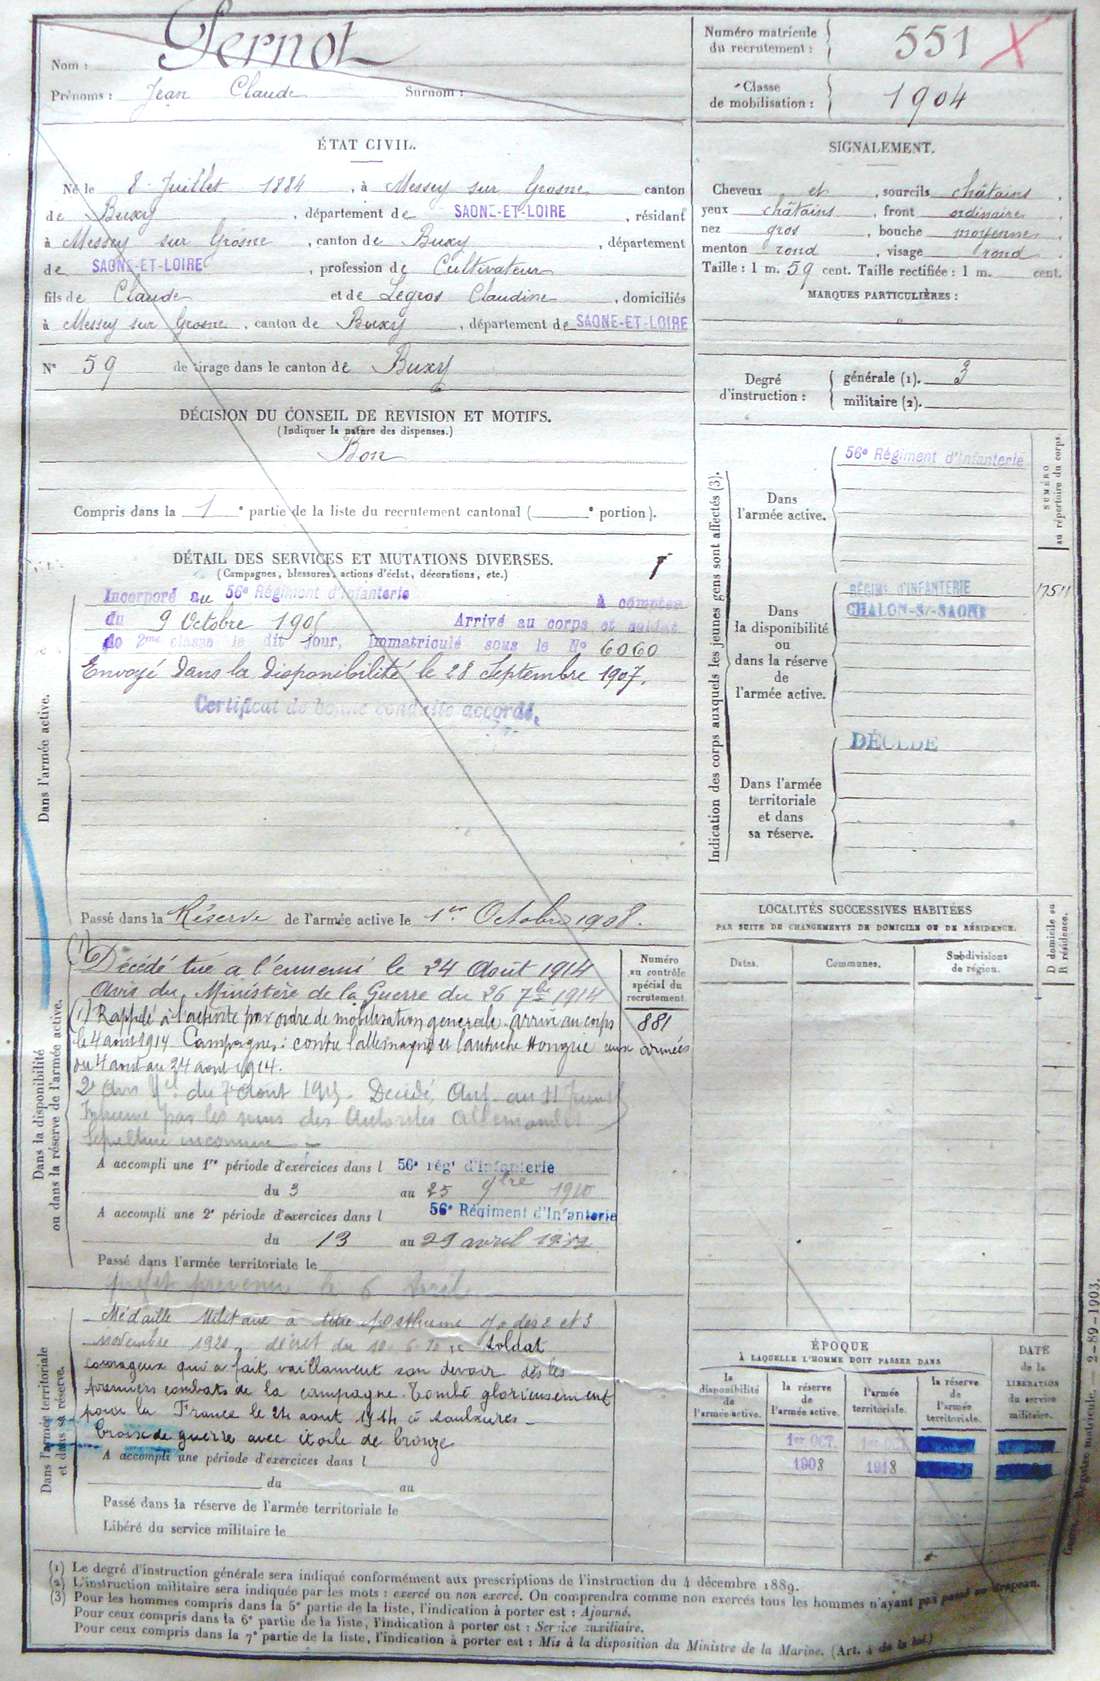 Nom : Pernot
Prénoms : Jean Claude Surnom :
Numéro matricule du recrutement : 551
Classe de mobilisation : 1904
ÉTAT CIVIL.
Né le 8 Juillet 1884, à Messey sur Grosne canton
de Buxy, département de SAONE-ET-LOIRE, résidant
à Messey sur Grosne, canton de Buxy, département
de SAONE-ET-LOIRE, profession de Cultivateur
fils de Claude et de Legros Claudine, domiciliés
à Messey sur Grosne, canton de Buxy, département de SAONE-ET-LOIRE
N° 59 de tirage dans le canton de Buxy
SIGNALEMENT.
Cheveux et, sourcils châtains,
yeux châtains, front ordinaire,
nez gros, bouche moyenne,
menton rond, visage rond.
Taille : 1 m. 59 cent. Taille rectifiée : 1 m. cent.
MARQUES PARTICULIÈRES :
Degré d'instruction :
générale (1). 3
militaire (2).
DÉCISION DU CONSEIL DE REVISION ET MOTIFS.
(Indiquer la nature des dispenses.)
Bon
Compris dans la 1e partie de la liste du recrutement cantonal ( e portion).
DÉTAIL DES SERVICES ET MUTATIONS DIVERSES.
(Campagnes, blessures, actions d'éclat, décorations, etc.)
Dans l'armée active.
Incorporé au 56e Régiment d'Infanterie à compter
du 9 Octobre 1905 Arrivé au corps et soldat
de 2me classe le dit jour, Immatriculé sous le N° 6060
Envoyé dans la disponibilité le 28 Septembre 1907.
Certificat de bonne conduite accordé.
Passé dans la Réserve de l'armée active le 1er Octobre 1908.
Indication des corps auxquels les jeunes gens sont affectés (3).
NUMÉRO au répertoire du corps.
Dans l'armée active.
56e Régiment d'Infanterie
Dans la disponibilité ou dans la réserve de l'armée active.
RÉGIMt D'INFANTERIE
CHALON-S/-SAONE
Dans l'armée territoriale et dans sa réserve.
DÉCÉDÉ
LOCALITÉS SUCCESSIVES HABITÉES
PAR SUITE DE CHANGEMENTS DE DOMICILE OU DE RÉSIDENCE.
D domicile ou R résidence.
Dates. Communes. Subdivisions de région.
Dans la disponibilité ou dans la réserve de l'armée active.
Numéro au contrôle spécial du recrutement
881
(1) Décédé tué à l'ennemi le 24 Août 1914
Avis du Ministère de la Guerre du 26 7bre 1914
(1) Rappelé à l'activité par ordre de mobilisation générale. Arrivé au corps
le 4 août 1914 Campagnes : contre l'allemagne et l'autriche Hongrie aux armées
du 4 août au 24 août 1914.
Inhumé par les soins des Autorités Allemandes
Sépulture inconnue
A accompli une 1re période d'exercices dans l 56e régt d'Infanterie
du 3 au 25 9bre 1910
A accompli une 2e période d'exercices dans l 56e Régiment d'Infanterie
du 13 au 29 avril 1912
Passé dans l'armée territoriale le
Dans l'armée territoriale et dans sa réserve.
Médaille Militaire à titre posthume J.O. des 2 et 3
novembre 1920, décret du Soldat
courageux qui a fait vaillament son devoir dès les
premiers combats de la campagne. Tombé glorieusement
pour la France le 24 août 1914 à Saulxures.
Croix de guerre avec étoile de bronze
A accompli une période d'exercices dans l
du au
Passé dans la réserve de l'armée territoriale le
Libéré du service militaire le
ÉPOQUE
À LAQUELLE L'HOMME DOIT PASSER DANS
DATE de la LIBÉRATION du service militaire.
la disponibilité de l'armée active.
la réserve de l'armée active.
l'armée territoriale.
la réserve de l'armée territoriale.
1er OCT.
1908 1918
(1) Le degré d'instruction générale sera indiqué conformément aux prescriptions de l'instruction du 4 décembre 1889.
(2) L'instruction militaire sera indiquée par les mots : exercé ou non exercé. On comprendra comme non exercés tous les hommes n'ayant pas passé au drapeau.
(3) Pour les hommes compris dans la 5e partie de la liste, l'indication à porter est : Ajourné.
Pour ceux compris dans la 6e partie de la liste, l'indication à porter est : Service auxiliaire.
Pour ceux compris dans la 7e partie de la liste, l'indication à porter est : Mis à la disposition du Ministre de la Marine. (Art. 4 de la loi.)
Registre matricule. — 2-89-1903.